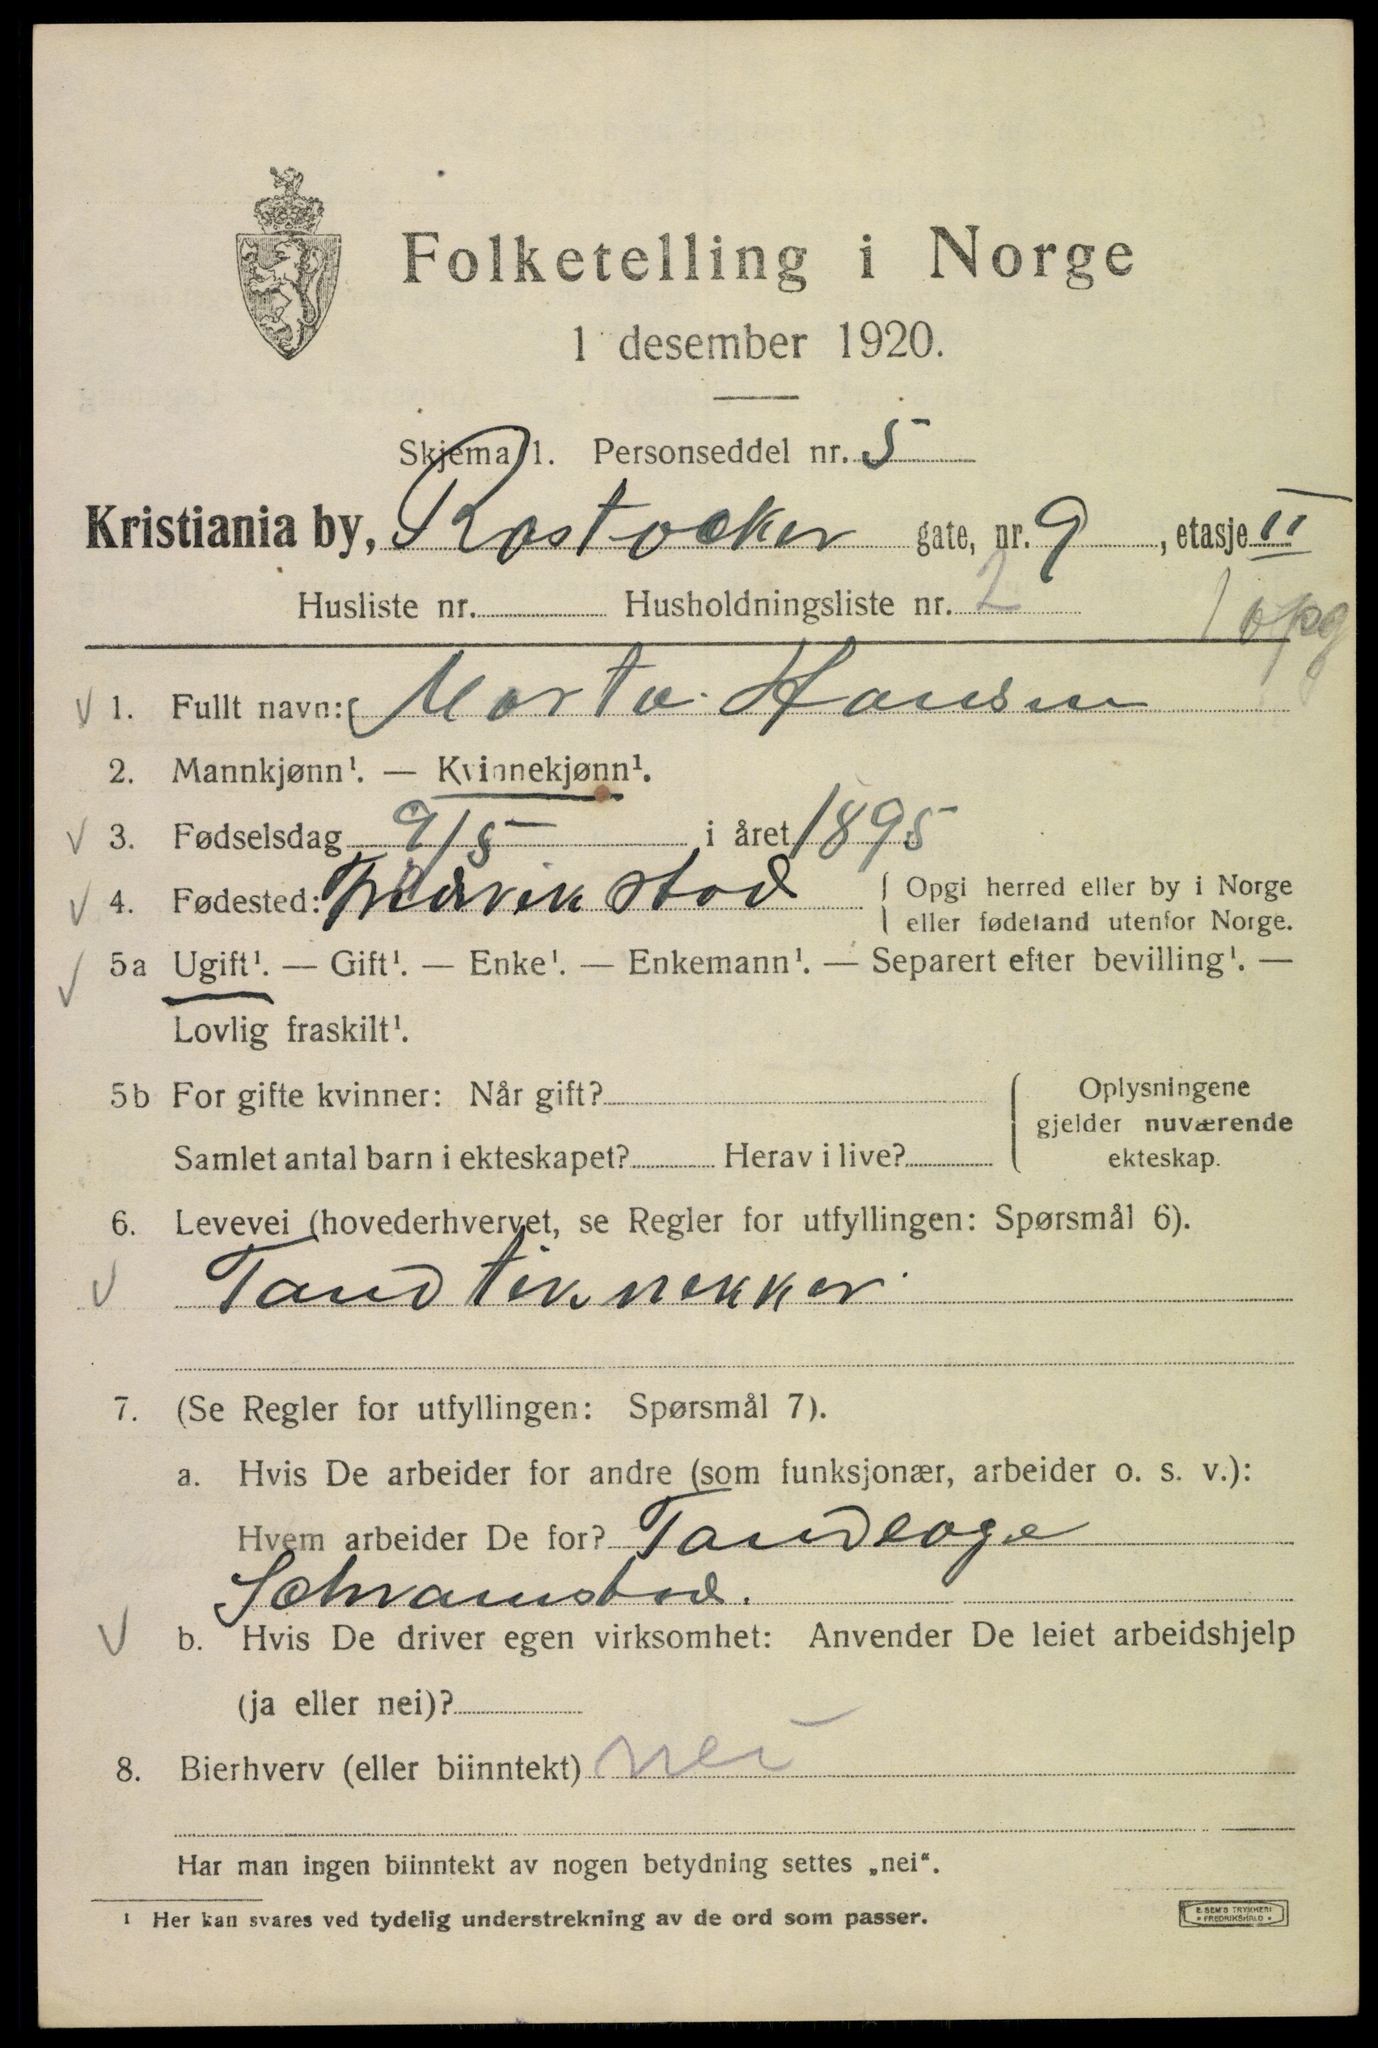 Folketelling i Norge
1 desember 1920.
Skjema 1. Personseddel nr. 5
Kristiania by, Rostocker gate, nr. 9, etasje II
Husliste nr. Husholdningsliste nr. 2
1 opg
1. Fullt navn: Marta Hansen
2. Mannkjønn¹. — Kvinnekjønn¹.
3. Fødselsdag 9/5 i året 1895
4. Fødested: Fredrikstad { Opgi herred eller by i Norge
eller fødeland utenfor Norge.
5a Ugift¹. — Gift¹. — Enke¹. — Enkemann¹. — Separert efter bevilling¹. —
Lovlig fraskilt¹.
5b For gifte kvinner: Når gift? { Oplysningene
gjelder nuværende
Samlet antal barn i ekteskapet? Herav i live? ekteskap.
6. Levevei (hovederhvervet, se Regler for utfyllingen: Spørsmål 6).
Tandteknekker
7. (Se Regler for utfyllingen: Spørsmål 7).
a. Hvis De arbeider for andre (som funksjonær, arbeider o. s. v.):
Hvem arbeider De for? Tandlæge
Schramstad.
b. Hvis De driver egen virksomhet: Anvender De leiet arbeidshjelp
(ja eller nei)?
8. Bierhverv (eller biinntekt) nei
Har man ingen biinntekt av nogen betydning settes „nei“.
¹ Her kan svares ved tydelig understrekning av de ord som passer.
E. SEM'S TRYKKERI
* FREDRIKSHALD *